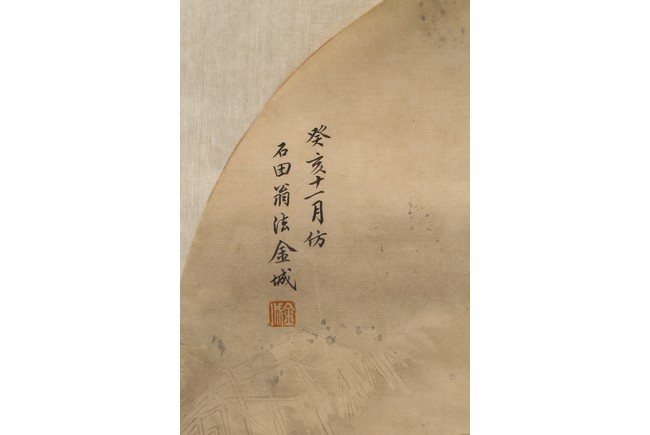 癸亥十一月仿
石田翁法金城